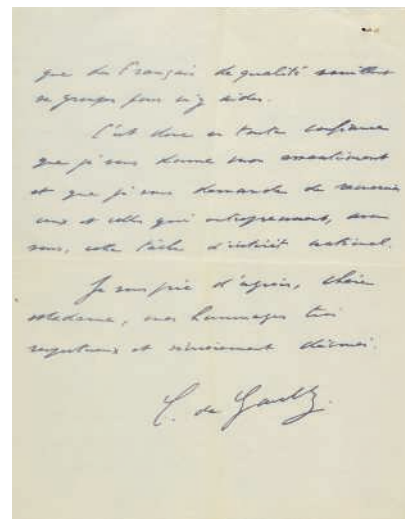 que des Français de qualité veuillent
se grouper pour m'y aider.
C'est donc en toute confiance
que je vous donne mon assentiment
et que je vous demande de remercier
ceux et celles qui entreprennent, avec
vous, cette tâche d'intérêt national.
Je vous prie d'agréer, chère
Madame, mes hommages très
respectueux et sincèrement dévoués.
C. de Gaulle.